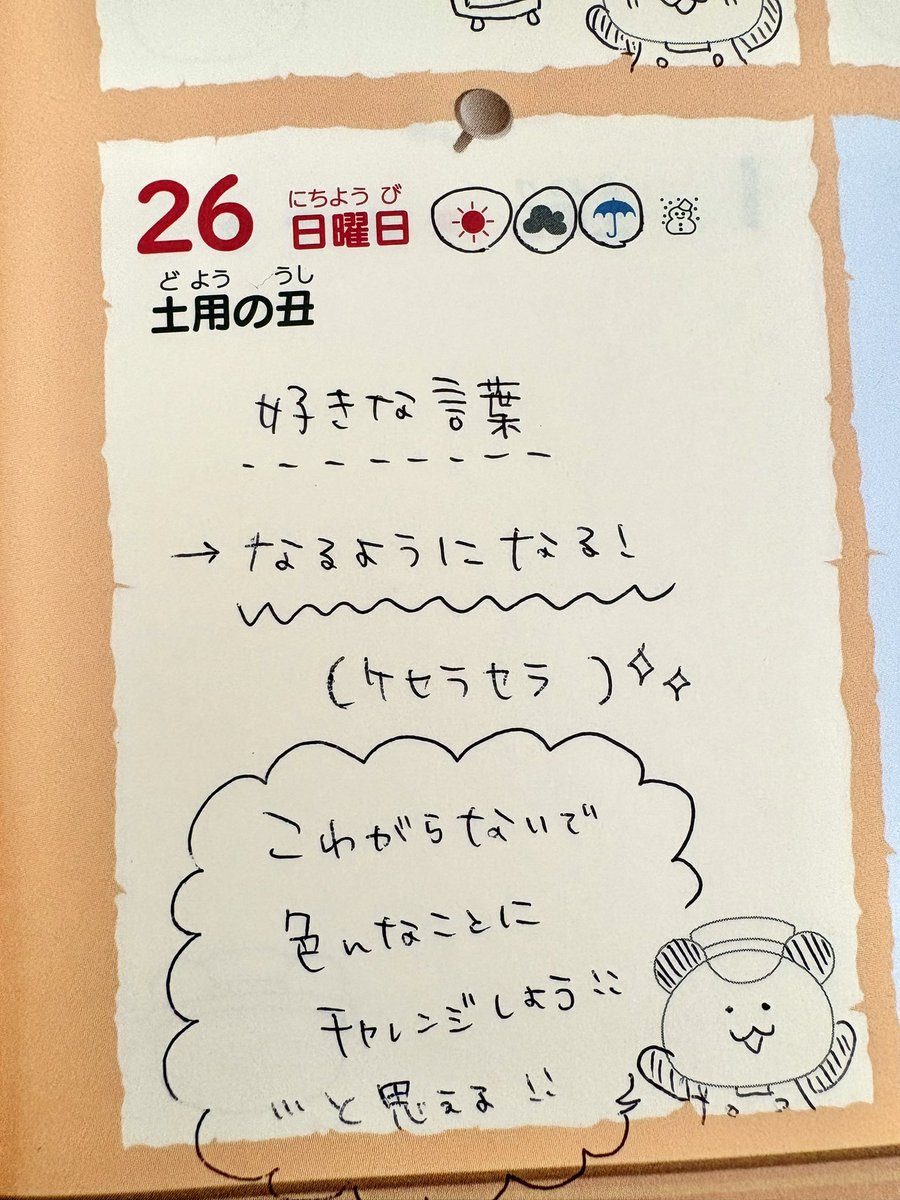 26 にちようび
日曜日
どよう うし
土用の丑
好きな言葉
→ なるようになる!
(ケセラセラ)
こわがらないで
色んなことに
チャレンジしよう!!
…と思える!!